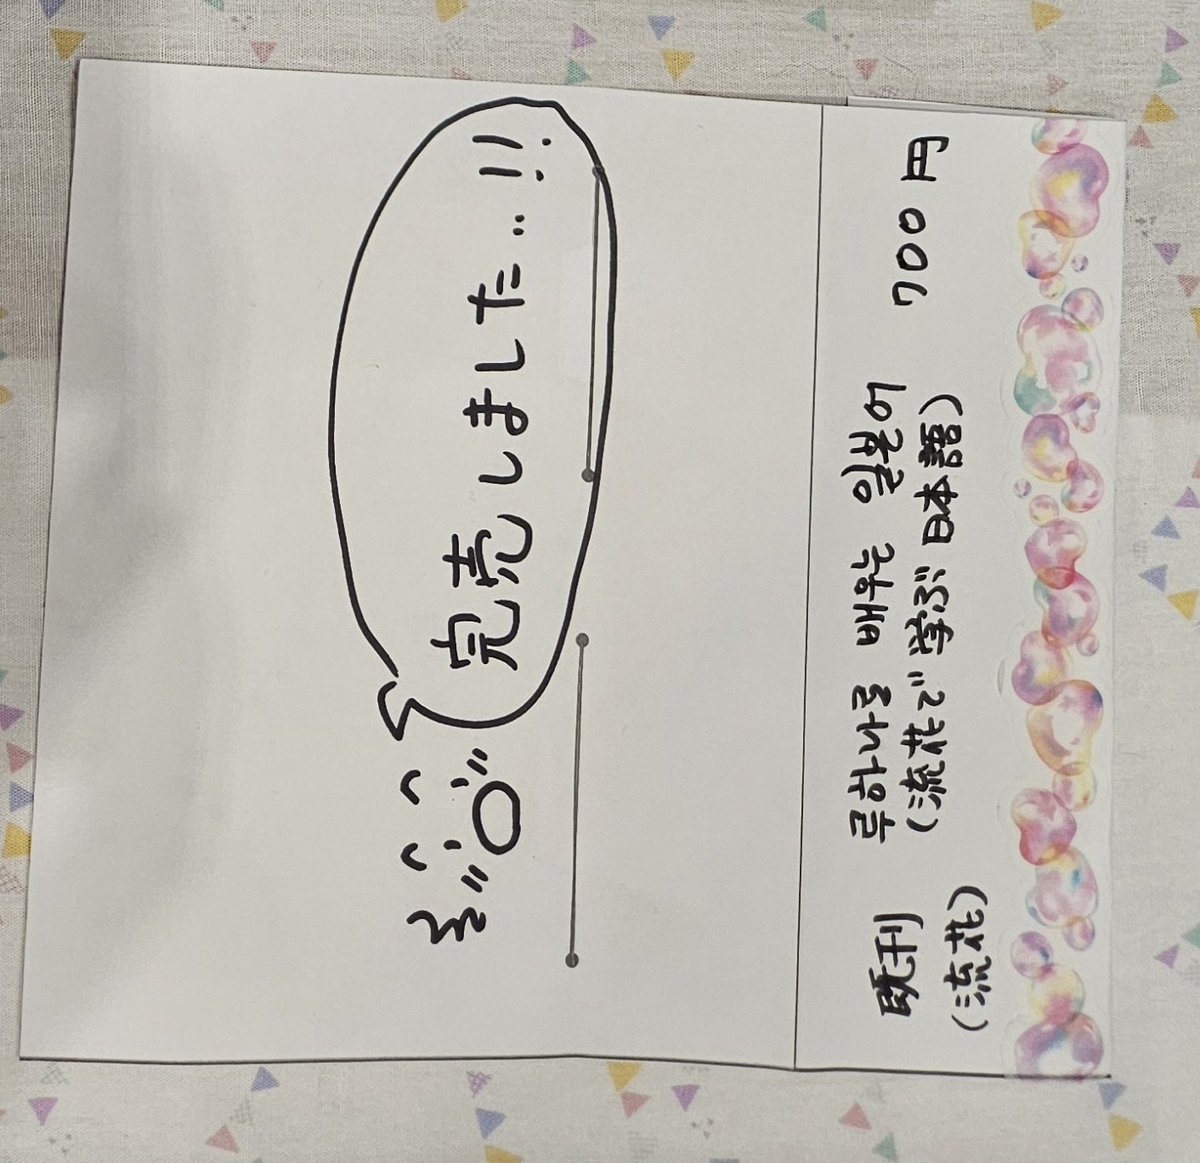 完売しました‥!!
既刊 루하나로 배우는 일본어 700円
(流花) (流花で学ぶ日本語)